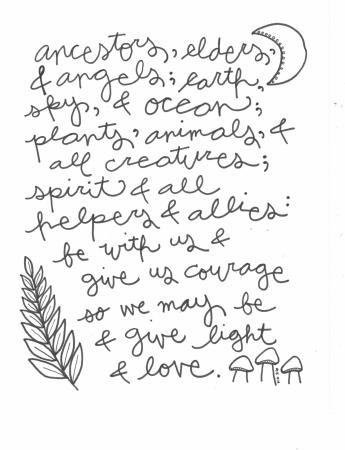 ancestors, elders,
& angels; earth,
sky, & ocean;
plants, animals, &
all creatures;
spirit & all
helpers & allies:
be with us &
give us courage
so we may be
& give light
& love.